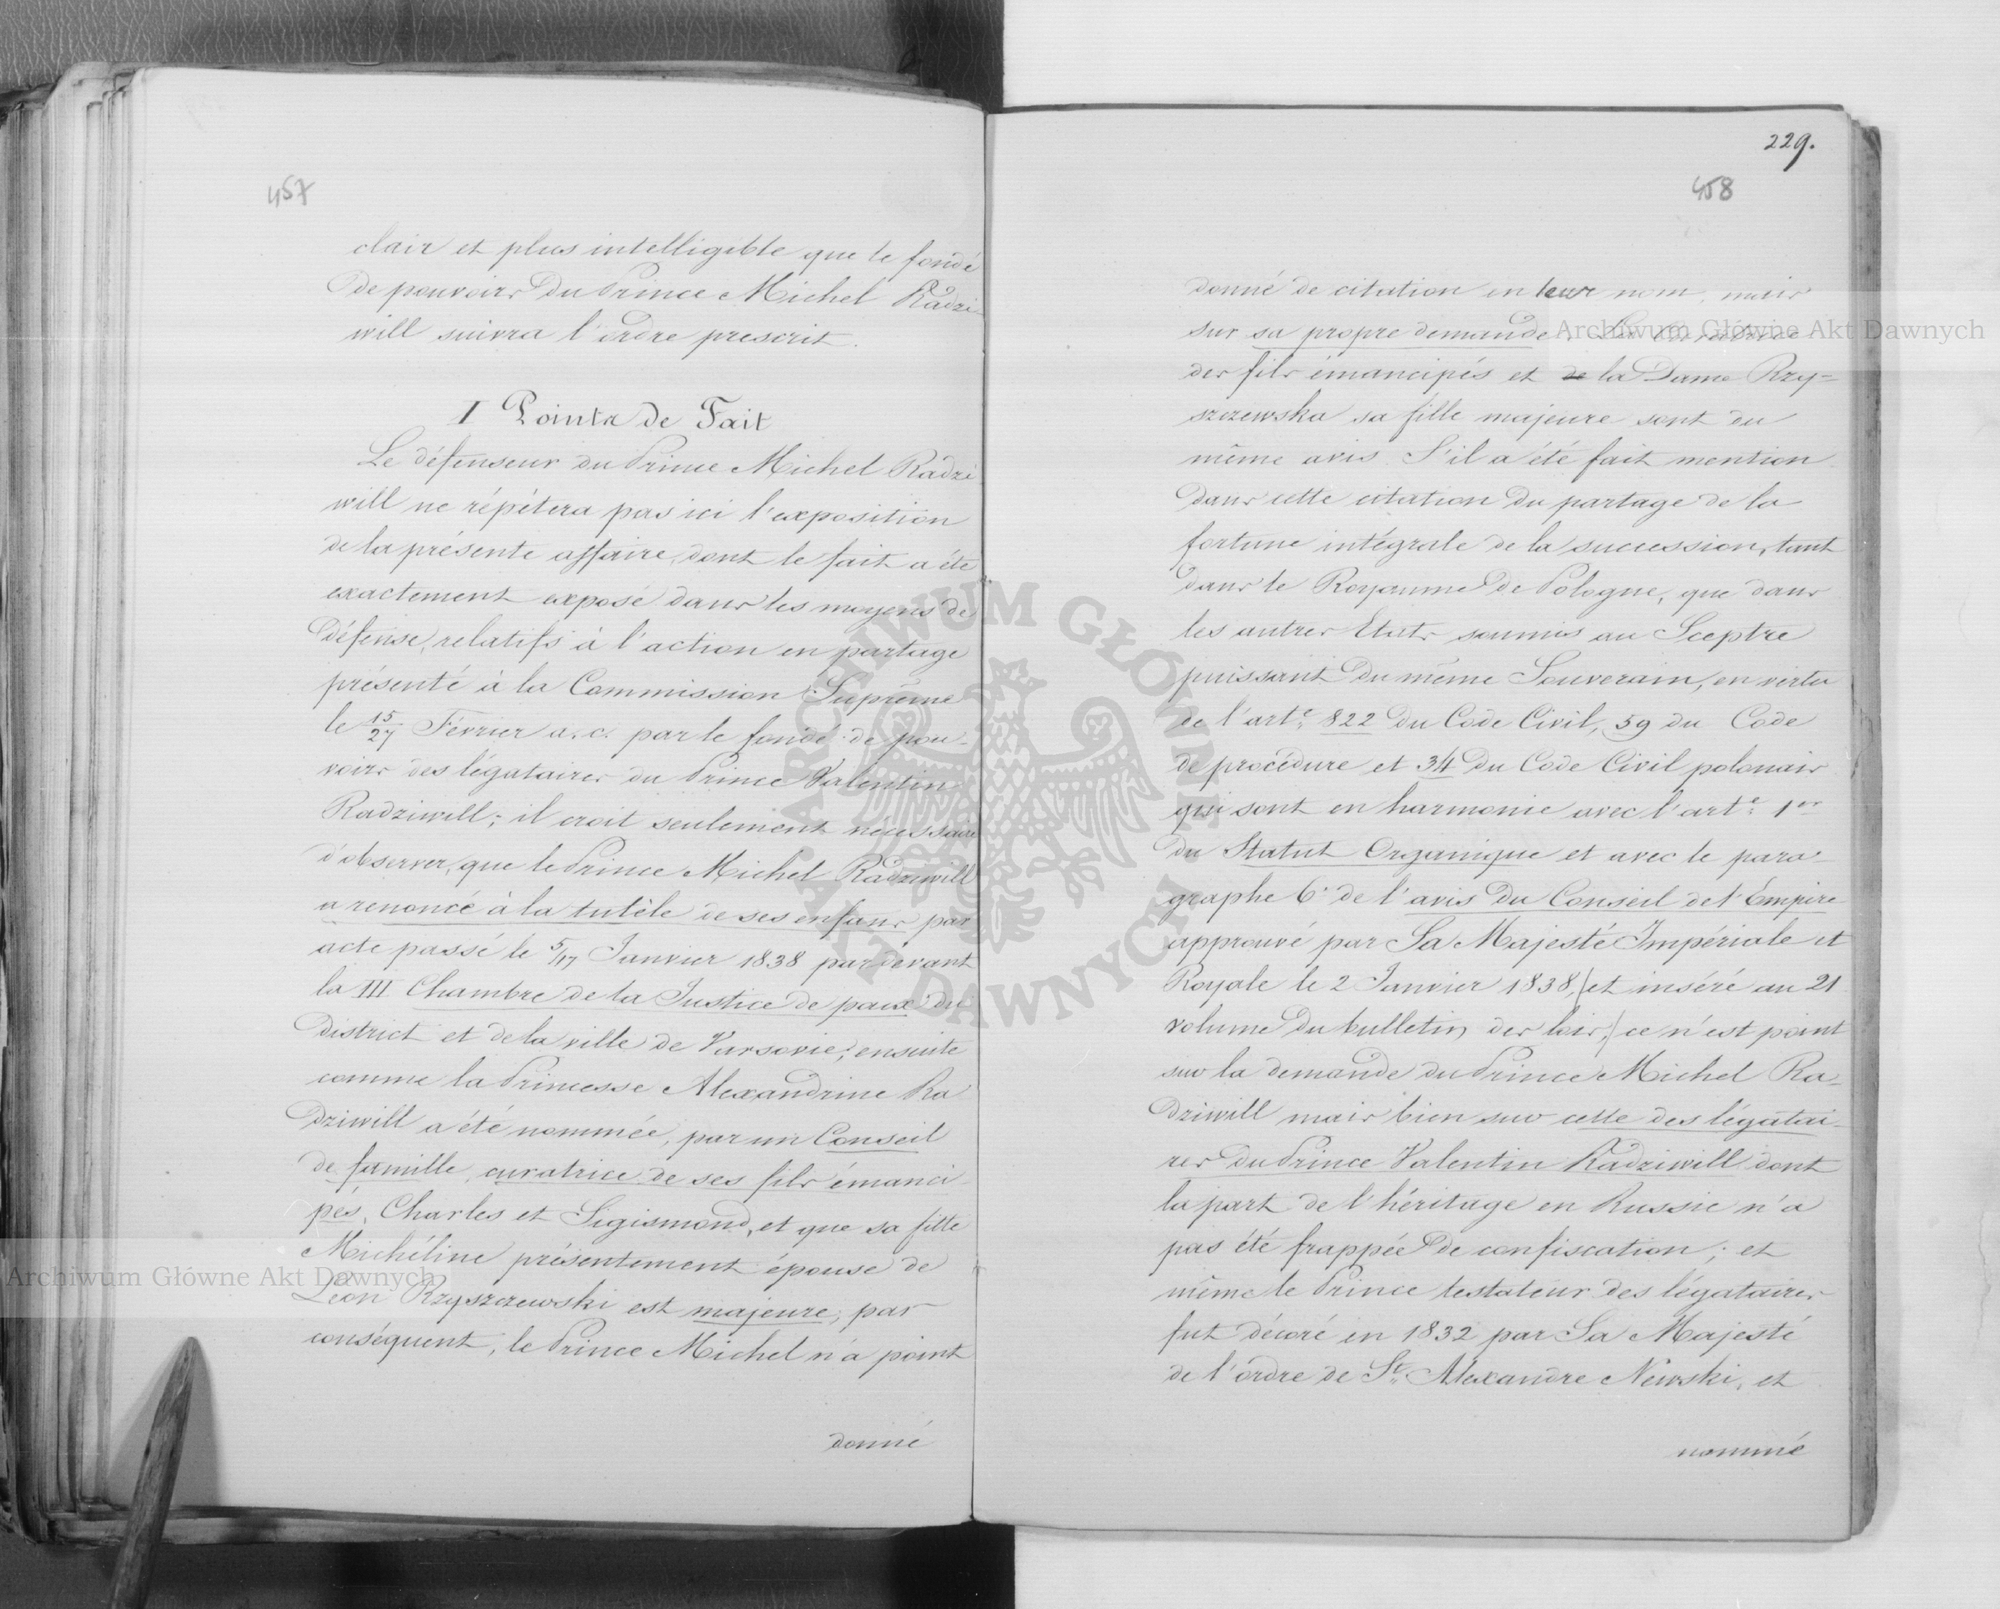 457
clair et plus intelligible que le fondé
de pouvoirs du Prince Michel Radzi-
will suivra l'ordre prescrit.
I Points de Fait
Le défenseur du Prince Michel Radzi
will ne répétera pas ici l'exposition
de la présente affaire, dont le fait a été
exactement exposé dans les moyens de
défense, relatifs à l'action en partage
présenté à la Commission Suprême
le 15/27 Février a. c. par le fondé de pou-
voirs des légataires du Prince Valentin
Radziwill; il croit seulement nécessaire
d'observer, que le Prince Michel Radziwill
a renoncé à la tutèle de ses enfans par
acte passé le 5/17 Janvier 1838 pardevant
la III Chambre de la Justice de paix du
District et de la ville de Varsovie; ensuite
comme la Princesse Alexandrine Ra
dziwill a été nommée, par un Conseil
de famille, curatrice de ses fils émanci-
pés, Charles et Sigismond, et que sa fille
Michéline présentement épouse de
Léon Rzyszczewski est majeure; par
conséquent, le Prince Michel n'a point
donné
229.
458
donné de citation en leur nom, mais
sur sa propre demande. La Curatrice
des fils émancipés et de la Dame Rzy-
szczewska sa fille majeure sont du
même avis. S'il a été fait mention
dans cette citation du partage de la
fortune intégrale de la succession, tant
dans le Royaume de Pologne, que dans
les autres Etats soumis au Sceptre
puissant du même Souverain, en vertu
de l'arte: 822 du Code Civil, 59 du Code
de procédure et 34 du Code Civil polonais
qui sont en harmonie avec l'arte: 1er
du Statut Organique et avec le para-
graphe 6: de l'avis du Conseil de l'Empire
approuvé par Sa Majesté Impériale et
Royale le 2 Janvier 1838, (et inséré au 21
volume du bulletin des lois;) ce n'est point
sur la demande du Prince Michel Ra-
dziwill mais bien sur celle des légatai-
res du Prince Valentin Radziwill dont
la part de l'héritage en Russie n'a
pas été frappée de confiscation; et
même le Prince testateur des légataires
fut décoré en 1832 par Sa Majesté
de l'ordre de St. Alexandre Newski, et
nommé
Archiwum Główne Akt Dawnych
Archiwum Główne Akt Dawnych
ARCHIWUM GŁÓWNE AKT DAWNYCH